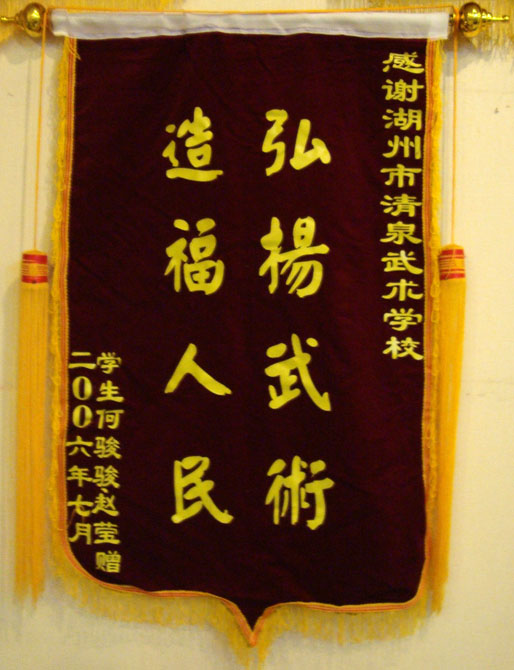 感谢湖州市清泉武术学校
弘揚武術
造福人民
学生何骏骏、赵莹赠
二00六年七月